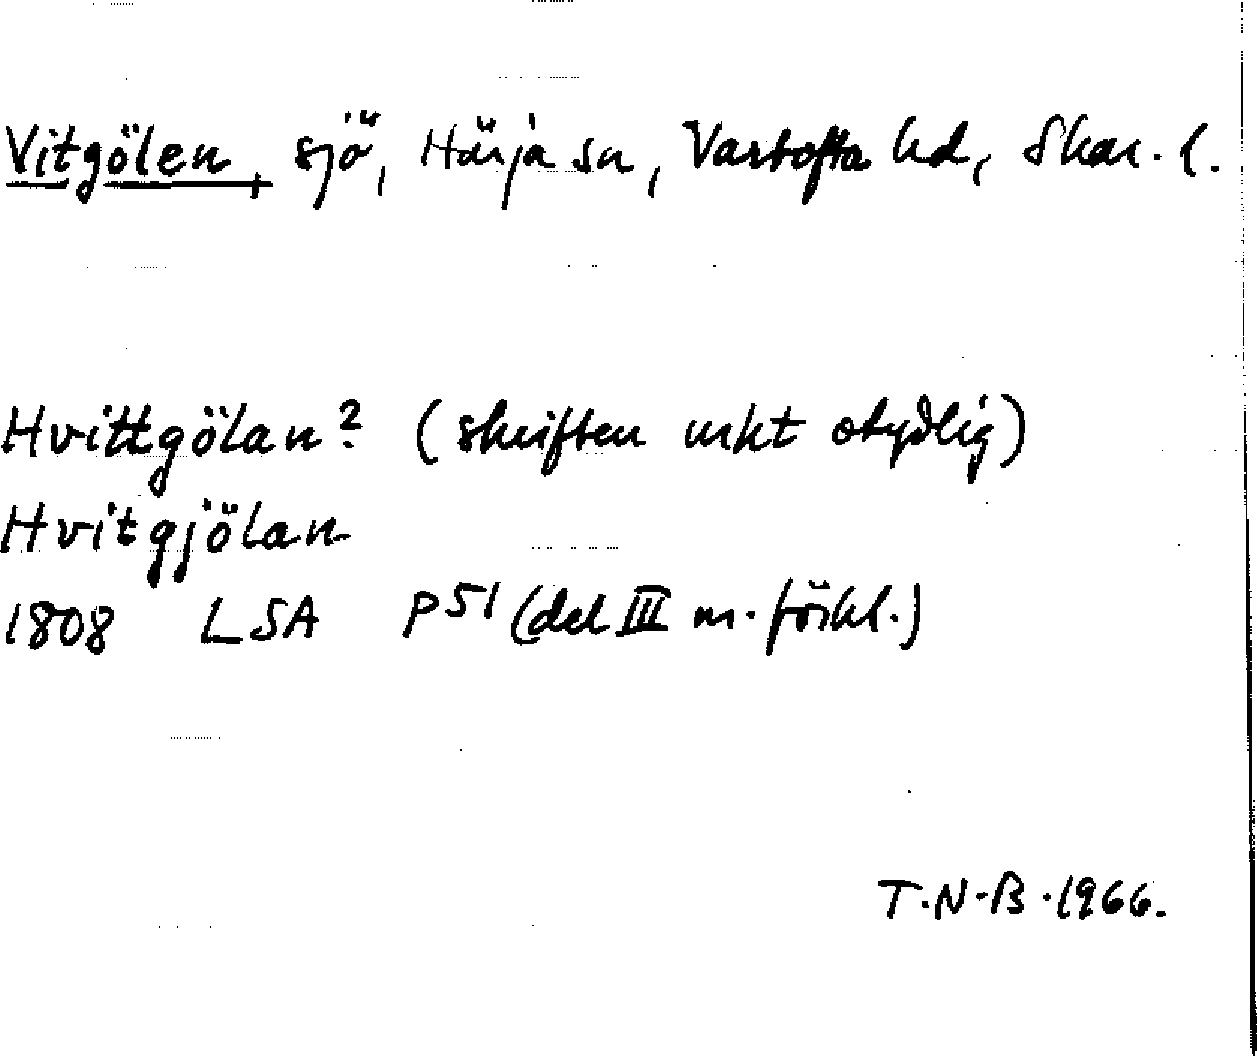 Vitgölen, sjö, Härja sn, Vartofta hd, Skar. l.
Hvittgölan? (skriften mkt otydlig)
Hvitgjölan
1808 LSA P51 (del III m. förkl.)
T.N.B. 1966.